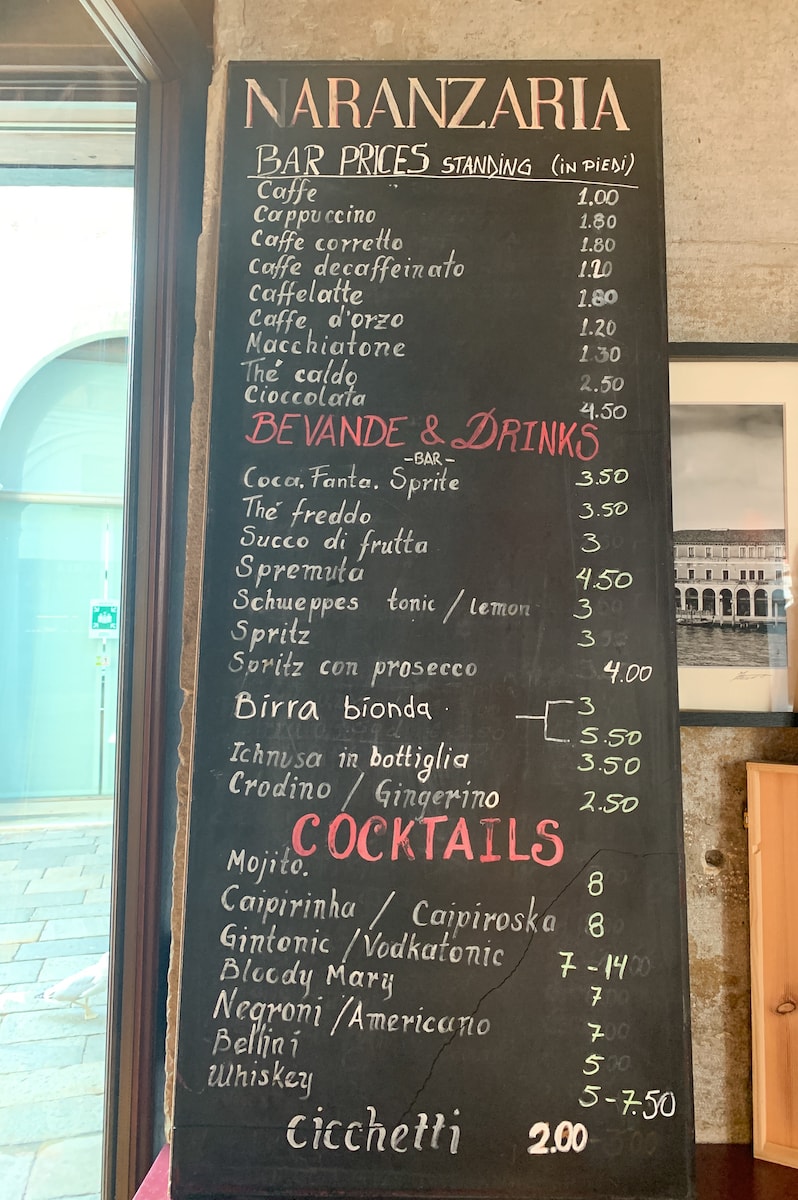 NARANZARIA
BAR PRICES STANDING (IN PIEDI)
Caffe 1.00
Cappuccino 1.80
Caffe corretto 1.80
Caffe decaffeinato 1.20
Caffelatte 1.80
Caffe d'orzo 1.20
Macchiatone 1.30
Thé caldo 2.50
Cioccolata 4.50
BEVANDE & DRINKS
-BAR-
Coca. Fanta. Sprite 3.50
Thé freddo 3.50
Succo di frutta 3
Spremuta 4.50
Schweppes tonic / lemon 3
Spritz 3
Spritz con prosecco 4.00
Birra bionda 3
5.50
Ichnusa in bottiglia 3.50
Crodino / Gingerino 2.50
COCKTAILS
Mojito. 8
Caipirinha / Caipiroska 8
Gintonic / Vodkatonic 7-14
Bloody Mary 7
Negroni / Americano 7
Bellini 5
Whiskey 5-7.50
Cicchetti 2.00